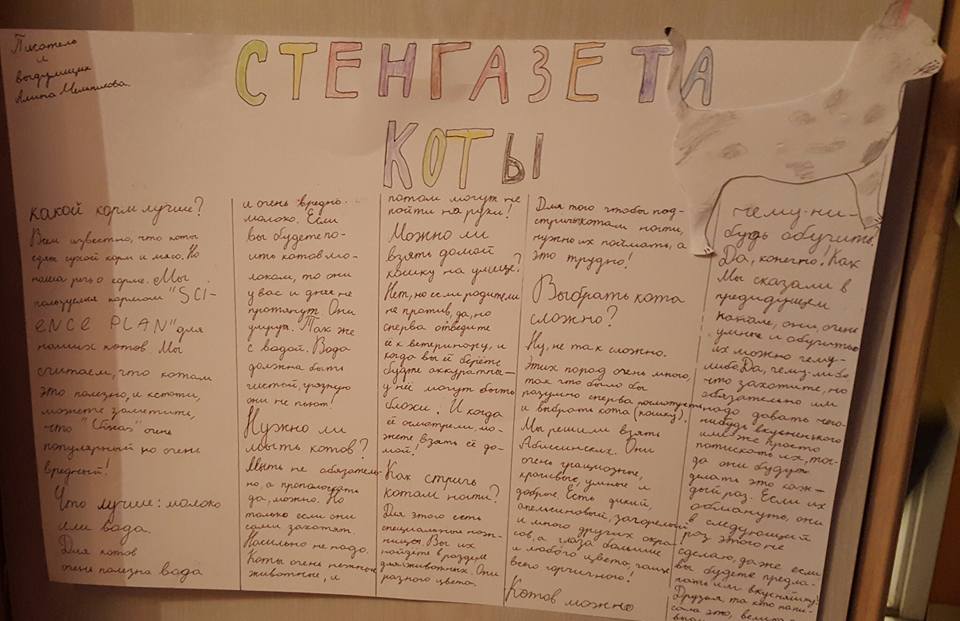 Писатель
и
выдумщик
Алина Мельникова.
СТЕНГАЗЕТА
КОТЫ
какой корм лучше?
Всем известно, что коты
едят сухой корм и мясо. Но
наша речь о корме. Мы
пользуемся кормом "SCI-
ENCE PLAN" для
наших котов Мы
считаем, что котам
это полезно, и кстати,
можете заметить,
что очень
популярный но очень
вредный!
Что лучше: молоко
или вода.
Для котов
очень полезна вода
и очень вредно
молоко. Если
вы будете по-
ить котов мо-
локом, то они
у вас и дня не
протянут. Они
умрут. Так же
с водой. Вода
должна быть
чистой, грязную
они не пьют!
Нужно ли
мыть котов?
Мыть не обязатель-
но, а прополоскать
да, можно. Но
только если они
сами захотят.
Насильно не надо.
Коты очень нежные
животные, и
потом могут не
пойти на руки!
Можно ли
взять домой
кошку на улице?
Нет, но если родители
не против, да, но
сперва отведите
её к ветеринару, и
когда вы её берёте
будьте аккуратны -
у неё могут быть
блохи. И когда
её осмотрели, мо-
жете взять её до-
мой!
Как стричь
котам ногти?
Для этого есть
специальные нож-
ницы. Вы их
найдете в разделе
для животных. Они
разного цвета.
Для того чтобы под-
стричь котам ногти,
нужно их поймать, а
это трудно!
Выбрать кота
сложно?
Ну, не так сложно.
Этих пород очень много,
так что было бы
разумно сперва посмотреть
и выбрать кота (кошку).
Мы решили взять
Абиссинских. Они
очень грациозные,
красивые, умные и
добрые. Есть дикий,
апельсиновый, загорелый
и много других окра-
сов, а глаза большие
и любого цвета, чаще
всего горчичного!
Котов можно
чему-ни-
будь обучить?
Да, конечно! Как
Мы сказали в
предидущем
они очень
умные и обучить
их можно чему-
либо. Да, чему-либо
что захотите, но
обязательно им
надо давать чего-
нибудь вкусненького
или же просто
потискать их, тог-
да они будут
делать это каж-
дый раз. Если их
обмануть, они
в следующий
раз этого не
сделают, даже если
вы будете предла-
гать им вкусняшку!
Друзья, та кто напи-
сала это,